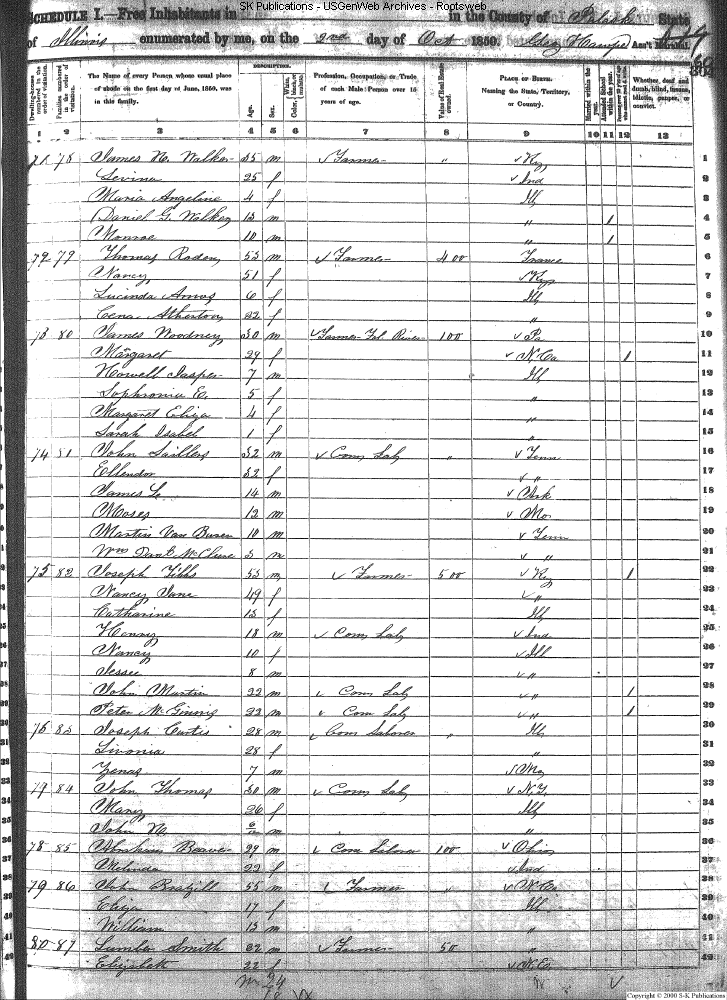 SK Publications - USGenWeb Archives - Rootsweb
SCHEDULE I.—Free Inhabitants in in the County of Pulask State
of Illinois enumerated by me, on the 2nd day of Oct 1850. Ass't Marshal.
DESCRIPTION.
Dwelling-houses numbered in the order of visitation.
Families numbered in the order of visitation.
The Name of every Person whose usual place of abode on the first day of June, 1850, was in this family.
Age.
Sex.
Color, White, black, or mulatto.
Profession, Occupation, or Trade of each Male Person over 15 years of age.
Value of Real Estate owned.
PLACE OF BIRTH. Naming the State, Territory, or Country.
Married within the year.
Attended School within the year.
Persons over 20 y'rs of age who cannot read & write.
Whether deaf and dumb, blind, insane, idiotic, pauper, or convict.
1 2 3 4 5 6 7 8 9 10 11 12 13
71 78 James N. Walker 35 m Farmer " Ky 1
Levina 25 f Ind 2
Maria Angeline 4 f Ill 3
Daniel G. Walker 13 m " 1 4
Monroe 10 m " 1 5
72 79 Thomas Roden 53 m Farmer 400 France 6
Nancy 51 f Ky 7
Lucinda Amos 6 f Ill 8
Cena Atherton 22 f " 9
73 80 James Woodney 30 m Farmer 100 Pa 10
Margaret 29 f N. Ca 1 11
Howell Jasper 7 m Ill 12
Sophronia E. 5 f " 13
Margaret Eliza 4 f " 14
Sarah Isabel 1 f " 15
74 81 John Saillers 32 m Com Lab " Tenn 16
Ellendor 32 f " 17
James L. 14 m Ark 18
Moses 12 m Mo 19
Martin Van Buren 10 m Tenn 20
Wm McClure 3 m " 21
75 82 Joseph Tibbs 53 m Farmer 500 Ky 1 22
Nancy Jane 49 f " 23
Catharine 13 f Ill 24
Henry 18 m Com Lab Ind 25
Nancy 10 f Ill 26
Jessee 8 m " 27
John Martin 22 m Com Lab " 1 28
Peter McGinnis 22 m Com Lab " 1 29
76 83 Joseph Curtis 28 m Com Laborer " Ill 30
Livonia 28 f " 31
Zenas 7 m Mo 32
79 84 John Thomas 30 m Com Lab N.Y. 33
Mary 26 f Ill 34
John N. m " 35
78 85 Abraham Beaver 29 m Com Laborer 100 Ohio 36
Melinda 22 f Ind 37
79 86 John 55 m Farmer " N. Ca 38
Eliza 17 f Ill 39
William 13 m " 40
80 87 Smith 22 m Farmer 50 " 41
Elizabeth 22 f N. C. 42
Copyright © 2000 S-K Publications